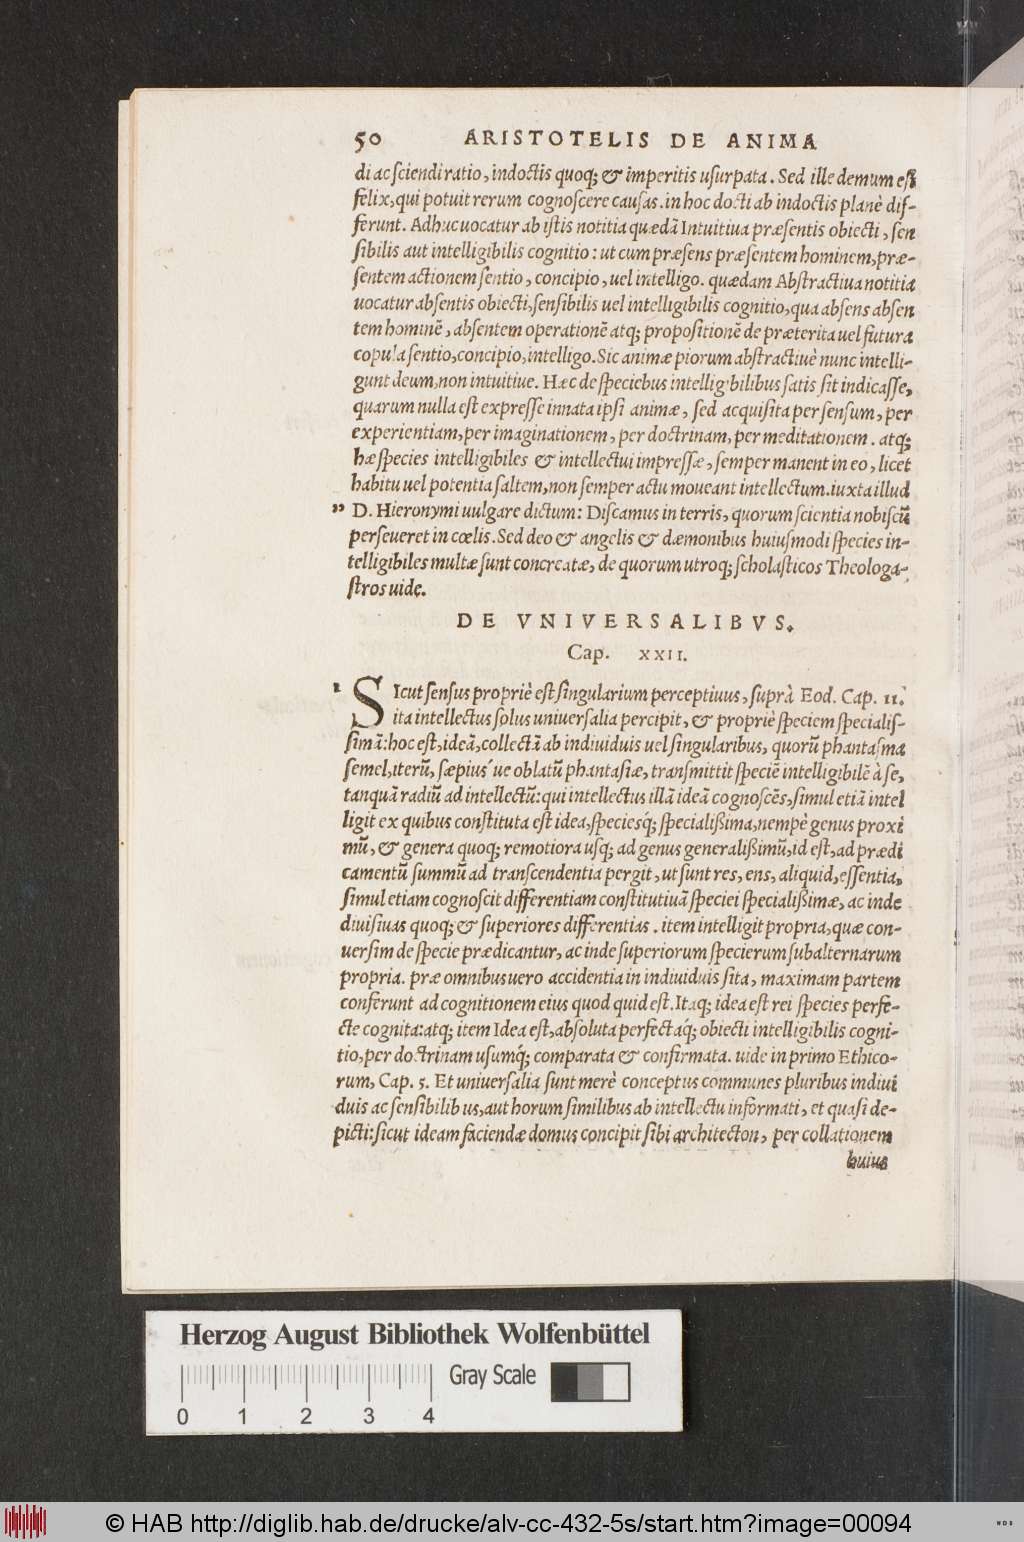 50 ARISTOTELIS DE ANIMA
di ac sciendi ratio, indoctis quoq; & imperitis usurpata. Sed ille demum est
felix, qui potuit rerum cognoscere causas. in hoc docti ab indoctis planè dif-
ferunt. Adhuc uocatur ab istis notitia quædã Intuitiua præsentis obiecti, sen
sibilis aut intelligibilis cognitio: ut cum præsens præsentem hominem, præ-
sentem actionem sentio, concipio, uel intelligo. quædam Abstractiua notitia
uocatur absentis obiecti, sensibilis uel intelligibilis cognitio, qua absens absen
tem hominẽ, absentem operationẽ atq; propositionẽ de præterita uel futura
copula sentio, concipio, intelligo. Sic animæ piorum abstractiuè nunc intelli-
gunt deum, non intuitiue. Hæc de speciebus intelligibilibus satis sit indicasse,
quarum nulla est expresse innata ipsi animæ, sed acquisita per sensum, per
experientiam, per imaginationem, per doctrinam, per meditationem. atq;
hæ species intelligibiles & intellectui impressæ, semper manent in eo, licet
habitu uel potentia saltem, non semper actu moueant intellectum. iuxta illud
" D. Hieronymi uulgare dictum: Discamus in terris, quorum scientia nobiscũ
perseueret in cœlis. Sed deo & angelis & dæmonibus huiusmodi species in-
telligibiles multæ sunt concreatæ, de quorum utroq; scholasticos Theologa-
stros uide.
DE VNIVERSALIBVS.
Cap. XXII.
1 SIcut sensus propriè est singularium perceptiuus, suprà Eod. Cap. 11.
ita intellectus solus uniuersalia percipit, & propriè speciem specialis-
simã: hoc est, ideã, collectã ab indiuiduis uel singularibus, quorũ phantasma
semel, iterũ, sæpius´ue oblatũ phantasiæ, transmittit speciẽ intelligibilẽ à se,
tanquã radiũ ad intellectũ: qui intellectus illã ideã cognoscẽs, simul etiã intel
ligit ex quibus constituta est idea, speciesq́; specialißima, nempè genus proxi
mũ, & genera quoq; remotiora usq; ad genus generalißimũ, id est, ad prædi
camentũ summũ ad transcendentia pergit, ut sunt res, ens, aliquid, essentia,
simul etiam cognoscit differentiam constitutiuã speciei specialißimæ, ac inde
diuisiuas quoq; & superiores differentias. item intelligit propria, quæ con-
uersim de specie prædicantur, ac inde superiorum specierum subalternarum
propria. præ omnibus uero accidentia in indiuiduis sita, maximam partem
conferunt ad cognitionem eius quod quid est. Itaq; idea est rei species perfe-
cte cognita: atq; item Idea est, absoluta perfectaq́; obiecti intelligibilis cogni-
tio, per doctrinam usumq́; comparata & confirmata. uide in primo Ethico-
rum, Cap. 5. Et uniuersalia sunt merè conceptus communes pluribus indiui
duis ac sensibilibus, aut horum similibus ab intellectu informati, et quasi de-
picti: sicut ideam faciendæ domus concipit sibi architecton, per collationem
huius
Herzog August Bibliothek Wolfenbüttel
Gray Scale
0 1 2 3 4
© HAB http://diglib.hab.de/drucke/alv-cc-432-5s/start.htm?image=00094